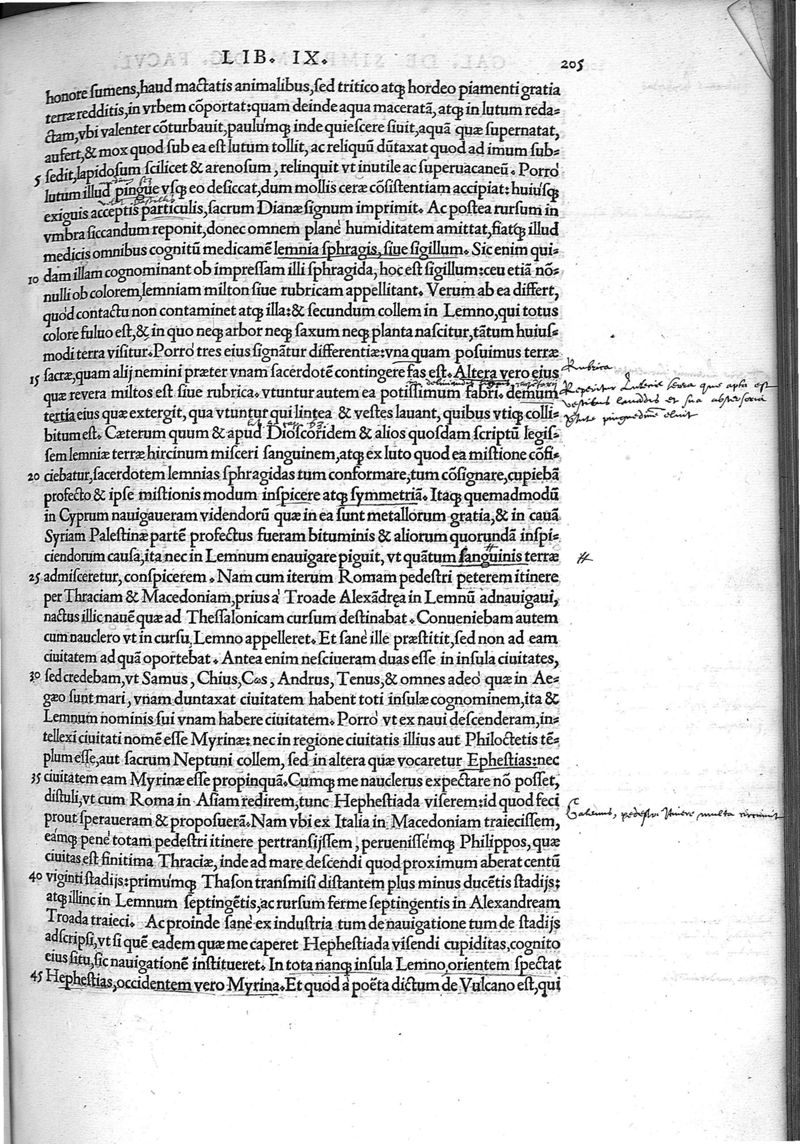 LIB. IX.
205
honore sumens, haud mactatis animalibus, sed tritico atqꝫ hordeo piamenti gratia
terræ redditis, in vrbem cõportat: quam deinde aqua maceratã, atqꝫ in lutum reda=
ctam, vbi valenter cõturbauit, paulúmqꝫ inde quiescere siuit, aquã quæ supernatat,
aufert, & mox quod sub ea est lutum tollit, ac reliquũ dũtaxat quod ad imum sub=
5 sedit, lapidosum scilicet & arenosum, relinquit vt inutile ac superuacaneũ. Porro
lutum illud pingue vsqꝫ eo desiccat, dum mollis ceræ cõsistentiam accipiat: huiúsqꝫ
exiguis acceptis particulis, sacrum Dianæ signum imprimit. Ac postea rursum in
vmbra siccandum reponit, donec omnem planè humiditatem amittat, fiatqꝫ illud
medicis omnibus cognitũ medicamẽ lemnia sphragis, siue sigillum. Sic enim qui=
10 dam illam cognominant ob impressam illi sphragida, hoc est sigillum: ceu etiã nõ=
nulli ob colorem, lemniam milton siue rubricam appellitant. Verum ab ea differt,
quòd contactu non contaminet atqꝫ illa: & secundum collem in Lemno, qui totus
colore fuluo est, & in quo neqꝫ arbor neqꝫ saxum neqꝫ planta nascitur, tãtum huius=
modi terra visitur. Porrò tres eius signãtur differentiæ: vna quam posuimus terræ
15 sacræ, quam alij nemini præter vnam sacerdotẽ contingere fas est. Altera vero eius
Rubrica
quæ revera miltos est siue rubrica. vtuntur autem ea potissimum fabri. demum
tertia eius quæ extergit, qua vtuntur qui lintea & vestes lauant, quibus vtiqꝫ colli=
bitum est. Cæterum quum & apud Dioscoridem & alios quosdam scriptũ legis=
sem lemniæ terræ hircinum misceri sanguinem, atqꝫ ex luto quod ea mistione cõfi=
20 ciebatur, sacerdotem lemnias sphragidas tum conformare, tum cõsignare, cupiebã
profecto & ipse mistionis modum inspicere atqꝫ symmetriã. Itaqꝫ quemadmodũ
in Cyprum nauigaueram videndorũ quæ in ea sunt metallorum gratia, & in cauã
Syriam Palestinæ partẽ profectus fueram bituminis & aliorum quorundã inspi=
ciendorum causa, ita nec in Lemnum enauigare piguit, vt quãtum sanguinis terræ
25 admisceretur, conspicerem. Nam cum iterum Romam pedestri peterem itinere
per Thraciam & Macedoniam, prius à Troade Alexãdręa in Lemnũ adnauigaui,
nactus illic nauẽ quæ ad Thessalonicam cursum destinabat. Conueniebam autem
cum nauclero vt in cursu, Lemno appelleret. Et sanè ille præstitit, sed non ad eam
ciuitatem ad quã oportebat. Antea enim nesciueram duas esse in insula ciuitates,
30 sed credebam, vt Samus, Chius, Cωs, Andrus, Tenus, & omnes adeò quæ in Ae=
gæo sunt mari, vnam duntaxat ciuitatem habent toti insulæ cognominem, ita &
Lemnum nominis sui vnam habere ciuitatem. Porrò vt ex naui descenderam, in=
tellexi ciuitati nomẽ esse Myrinæ: nec in regione ciuitatis illius aut Philoctetis tẽ=
plum esse, aut sacrum Neptuni collem, sed in altera quæ vocaretur Ephestias: nec
35 ciuitatem eam Myrinæ esse propinquã. Cumqꝫ me nauclerus expectare nõ posset,
distuli, vt cum Roma in Asiam redirem, tunc Hephestiada viserem: id quod feci
Galenus, pedestri itinere multa
prout speraueram & proposuerã. Nam vbi ex Italia in Macedoniam traiecissem,
eámqꝫ penè totam pedestri itinere pertransijssem, peruenissémqꝫ Philippos, quæ
ciuitas est finitima Thraciæ, inde ad mare descendi quod proximum aberat centũ
40 viginti stadijs: primúmqꝫ Thason transmisi distantem plus minus ducẽtis stadijs:
atqꝫ illinc in Lemnum septingẽtis, ac rursum ferme septingentis in Alexandream
Troada traieci. Ac proinde sanè ex industria tum de nauigatione tum de stadijs
adscripsi, vt si quẽ eadem quæ me caperet Hephestiada visendi cupiditas, cognito
eius situ, sic nauigationẽ institueret. In tota nanqꝫ insula Lemno, orientem spectat
45 Hephestias, occidentem vero Myrina. Et quod à poëta dictum de Vulcano est, qui